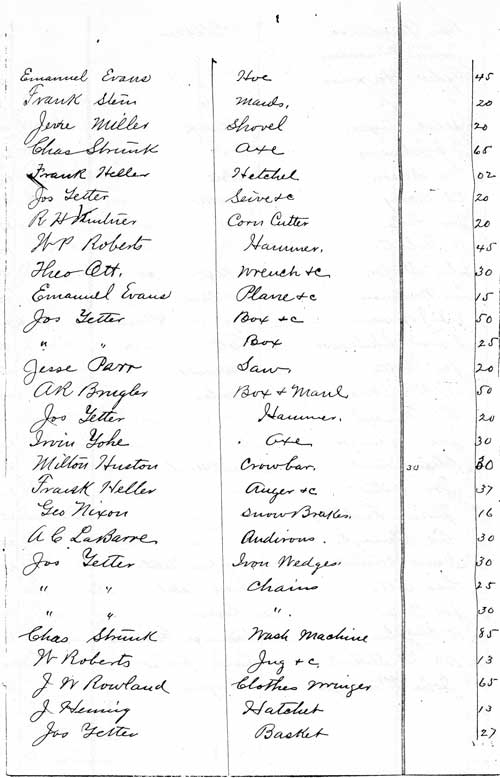 Emanuel Evans Hoe 45
Frank Stein Mauls, 20
Jesse Miller Shovel 20
Chas Strunk Axe 65
Frank Heller Hetchel 02
Jos Yetter Seive &c 20
R H Corn Cutter 20
W P Roberts Hammer, 45
Theo Ott, Wrench &c 30
Emanuel Evans Plane &c 15
Jos Yetter Box &c 50
" " Box 25
Jesse Parr Saw 20
AR Brugler Box & Maul 50
Jos Yetter Hammer. 20
Irvin Yohe Axe 30
Milton Huston Crowbar, 30 30
Frank Heller Auger &c 37
Geo Nixon Snow Brakes. 16
A C LaBarre Andirons. 30
Jos Yetter Iron Wedges. 30
" " Chains 25
" " " 30
Chas Strunk Wash Machine 85
W Roberts Jug &c 13
J W Rowland Clothes wringer 65
J Hatchet 13
Jos Yetter Basket 27